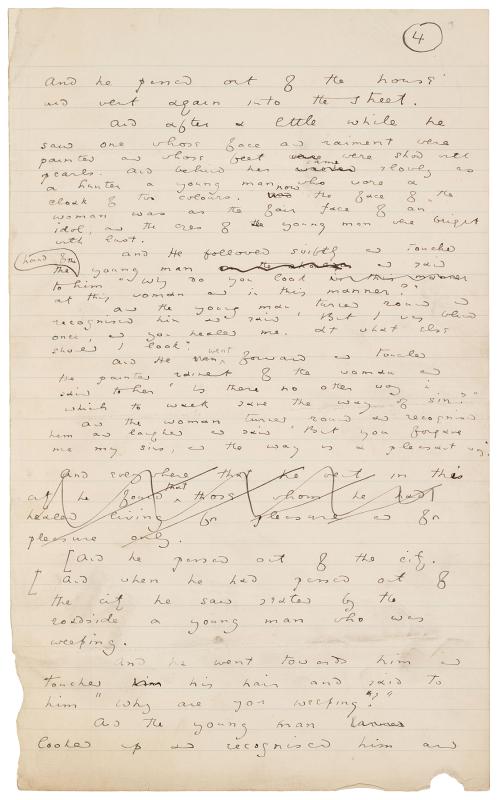 4
And he passed out of the house
and went again into the street.
And after a little while he
saw one whose face and raiment were
painted and whose feet were shod with
pearls. And behind her came slowly as
a hunter a young man who wore a
cloak of two colours. now the face of the
woman was as the fair face of an
idol, and the eyes of the young man were bright
with lust.
and He followed swiftly and touched
hand of the
the young man and said
to him "Why do you look
at this woman and in this manner?"
and the young man turned round and
recognised him and said 'But I was blind
once, and you healed me. At what else
should I look?'
and He went forward and touched
the painted raiment of the woman and
said to her 'Is there no other way in
which to walk save the way of sin?'
and the woman turned round and recognised
him and laughed and said 'But you forgave
me my sins, and the way is a pleasant way.'
And everywhere that he went in this
city he found that those whom he had
healed living for pleasure and for
pleasure only.
[And he passed out of the city.
[And when he had passed out of
the city he saw seated by the
roadside a young man who was
weeping.
And he went towards him and
touched him his hair and said to
him "Why are you weeping?"
And the young man
looked up and recognised him and